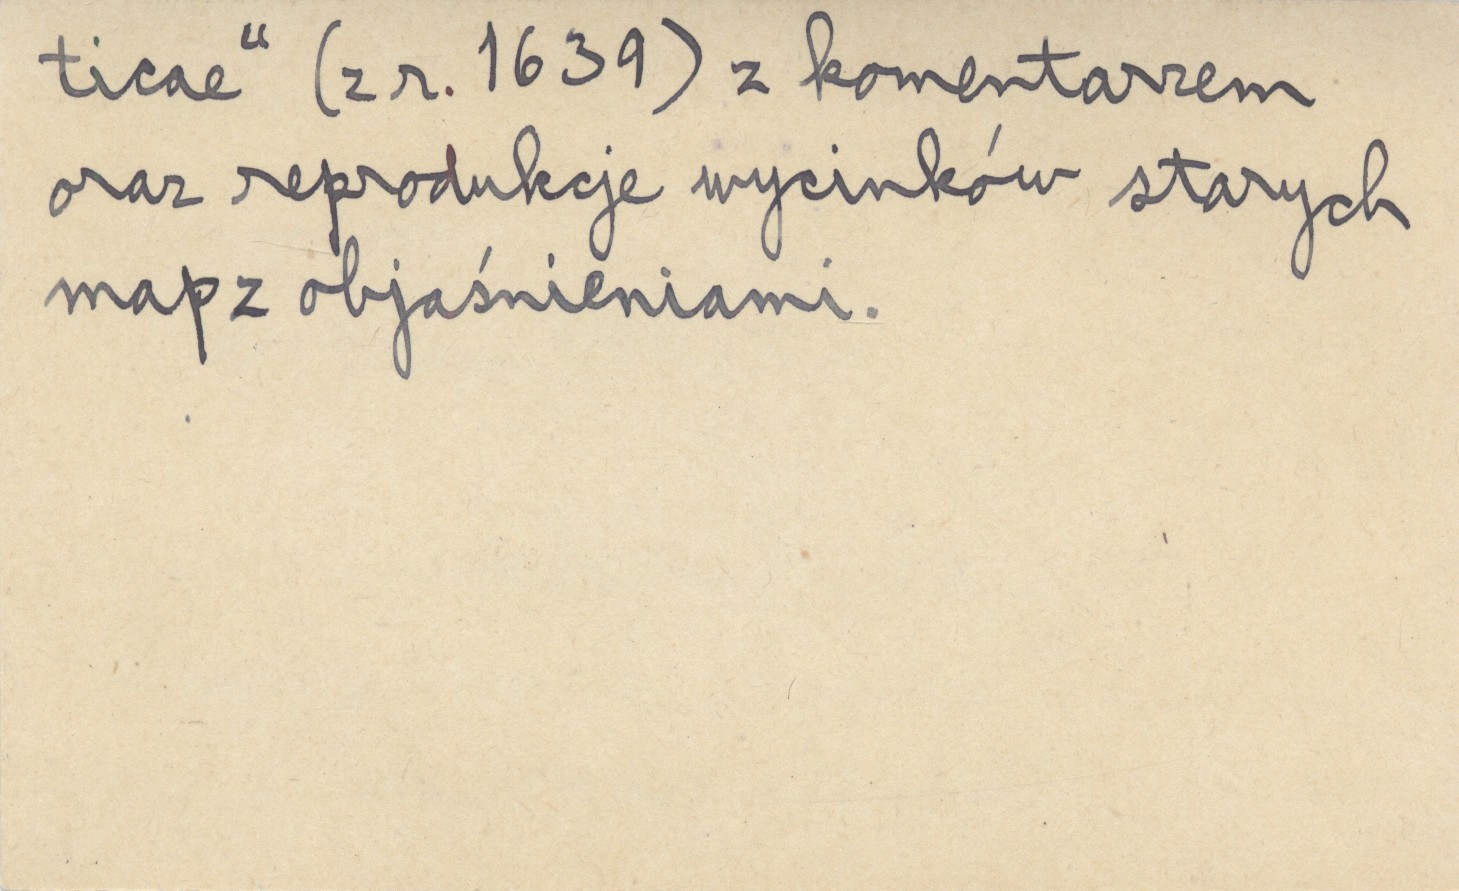 ticae“ (z r. 1639) z komentarzem
oraz reprodukcje wycinków starych
map z objaśnieniami.